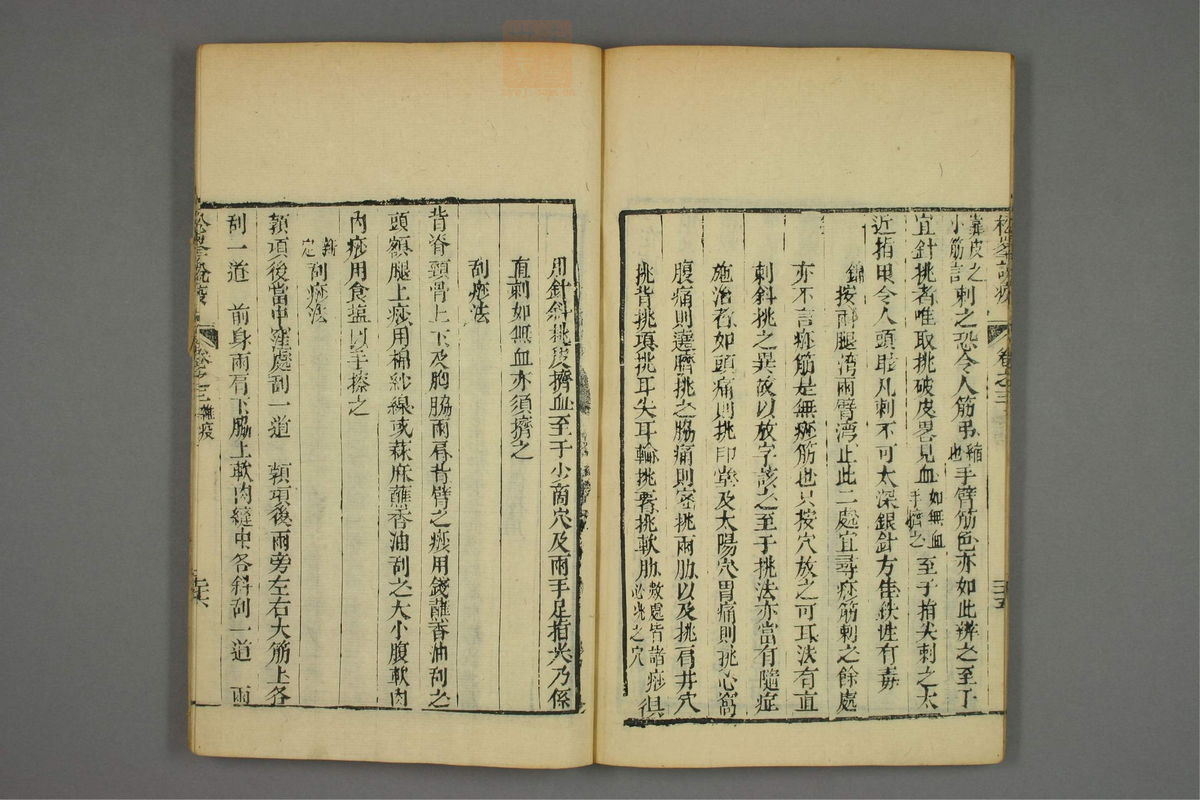 松峯說疫 卷之三 二十五
靠皮之小筋言刺之恐令人筋弔縮也手臂筋色亦如此辨之至于
宜針挑者唯取挑破皮畧見血如無血手擠之至于指尖刺之太
近指甲令人頭眩凡刺不可太深銀針方佳鉄性有毒
按兩腿湾兩臂湾止此二處宜尋痧筋刺之餘處
亦不言痧筋是無痧筋也只按穴放之可耳法有直
刺斜挑之異故以放字該之至于挑法亦當有隨症
施治者如頭痛則挑印堂及太陽穴胃痛則挑心窩
腹痛則遶臍挑之脇痛則密挑兩肋以及挑肩井穴
挑背挑項挑耳尖耳輪挑
挑軟肋數處皆諸痧必挑之穴俱
用針斜挑皮擠血至于少商穴及兩手足指尖乃係
直刺如無血亦須擠之
刮痧法
背脊頸骨上下及胸脇兩肩背臂之痧用錢蘸香油刮之
頭額腿上痧用棉紗線或蔴麻蘸香油刮之大小腹軟肉
內痧用食塩以手擦之
新定刮痧法
顙項後當中窪處刮一道 顙項後兩旁左右大筋上各
刮一道 前身兩肩下脇上軟肉縫中各斜刮一道 兩
松峯說疫 卷之三 雜疫 二十六